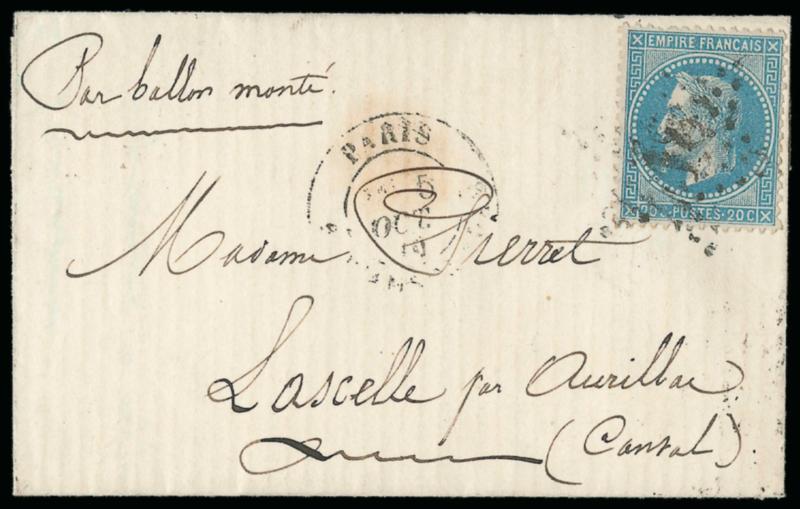 Par ballon monté.
EMPIRE FRANÇAIS
20 C POSTES 20 C
PARIS
5
OCT
70
Madame Pierret
Lascelle par Aurillac
(Cantal).